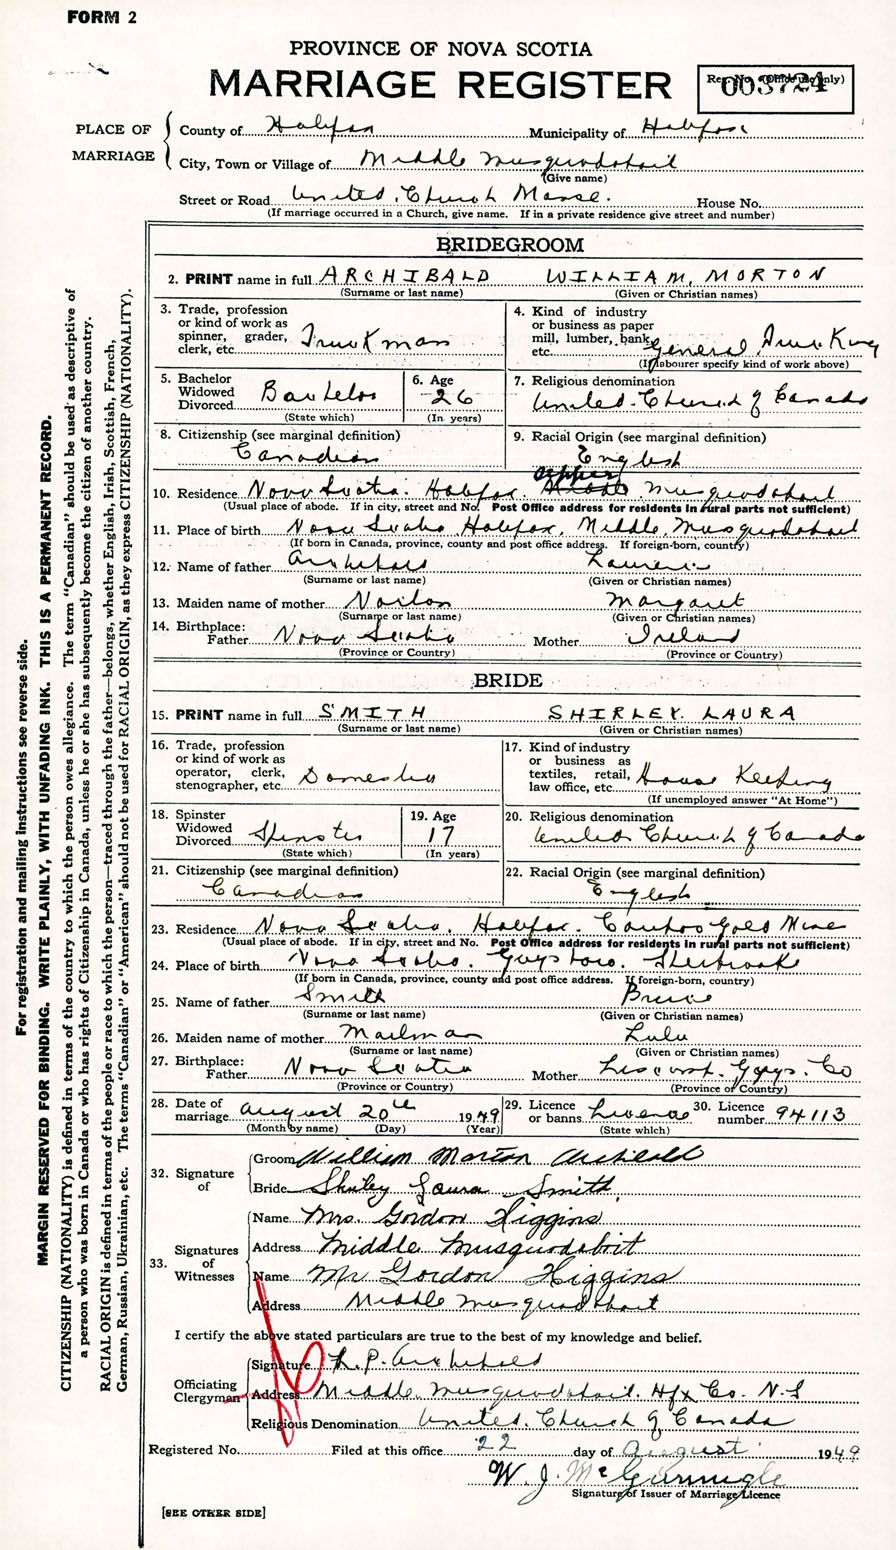 FORM 2
PROVINCE OF NOVA SCOTIA
MARRIAGE REGISTER
Reg. No. (Office use only)
003724
PLACE OF MARRIAGE
County of Halifax Municipality of Halifax
City, Town or Village of Middle Musquodoboit
(Give name)
Street or Road United Church Manse. House No.
(If marriage occurred in a Church, give name. If in a private residence give street and number)
BRIDEGROOM
2. PRINT name in full ARCHIBALD WILLIAM, MORTON
(Surname or last name) (Given or Christian names)
3. Trade, profession or kind of work as spinner, grader, clerk, etc. Truckman
4. Kind of industry or business as paper mill, lumber, bank, etc. General Trucking
(If labourer specify kind of work above)
5. Bachelor Widowed Divorced Bachelor
(State which)
6. Age 26
(In years)
7. Religious denomination
United Church of Canada
8. Citizenship (see marginal definition)
Canadian
9. Racial Origin (see marginal definition)
English
10. Residence Nova Scotia. Halifax. Upper Musquodoboit
(Usual place of abode. If in city, street and No. Post Office address for residents in rural parts not sufficient)
11. Place of birth Nova Scotia Halifax, Middle Musquodoboit
(If born in Canada, province, county and post office address. If foreign-born, country)
12. Name of father Archibald
(Surname or last name) (Given or Christian names)
13. Maiden name of mother Margaret
(Surname or last name) (Given or Christian names)
14. Birthplace:
Father Nova Scotia Mother Ireland
(Province or Country) (Province or Country)
BRIDE
15. PRINT name in full SMITH SHIRLEY LAURA
(Surname or last name) (Given or Christian names)
16. Trade, profession or kind of work as operator, clerk, stenographer, etc. Domestic
17. Kind of industry or business as textiles, retail, law office, etc. House Keeping
(If unemployed answer "At Home")
18. Spinster Widowed Divorced Spinster
(State which)
19. Age 17
(In years)
20. Religious denomination
United Church of Canada
21. Citizenship (see marginal definition)
Canadian
22. Racial Origin (see marginal definition)
English
23. Residence Nova Scotia. Halifax. Caribou Gold Mine
(Usual place of abode. If in city, street and No. Post Office address for residents in rural parts not sufficient)
24. Place of birth Nova Scotia. Guysboro. Sherbrooke
(If born in Canada, province, county and post office address. If foreign-born, country)
25. Name of father Smith Bruce
(Surname or last name) (Given or Christian names)
26. Maiden name of mother Mailman Lulu
(Surname or last name) (Given or Christian names)
27. Birthplace:
Father Nova Scotia Mother Liscomb. Guys. Co
(Province or Country) (Province or Country)
28. Date of marriage August 20th 1949
(Month by name) (Day) (Year)
29. Licence or banns License
(State which)
30. Licence number 94113
32. Signature of
Groom William Morton Archibald
Bride Shirley Laura Smith
33. Signatures of Witnesses
Name Mrs. Gordon Higgins
Address Middle Musquodoboit
Name Mr Gordon Higgins
Address Middle Musquodoboit
I certify the above stated particulars are true to the best of my knowledge and belief.
Officiating Clergyman
Signature L. P. Archibald
Address Middle Musquodoboit. Hfx Co. N.S
Religious Denomination United Church of Canada
Registered No. Filed at this office 22 day of August 1949
W. J. McGunnigle
Signature of Issuer of Marriage Licence
[SEE OTHER SIDE]
For registration and mailing instructions see reverse side.
MARGIN RESERVED FOR BINDING. WRITE PLAINLY, WITH UNFADING INK. THIS IS A PERMANENT RECORD.
CITIZENSHIP (NATIONALITY) is defined in terms of the country to which the person owes allegiance. The term "Canadian" should be used as descriptive of
a person who was born in Canada or who has rights of Citizenship in Canada, unless he or she has subsequently become the citizen of another country.
RACIAL ORIGIN is defined in terms of the people or race to which the person—traced through the father—belongs, whether English, Irish, Scottish, French,
German, Russian, Ukrainian, etc. The terms "Canadian" or "American" should not be used for RACIAL ORIGIN, as they express CITIZENSHIP (NATIONALITY).